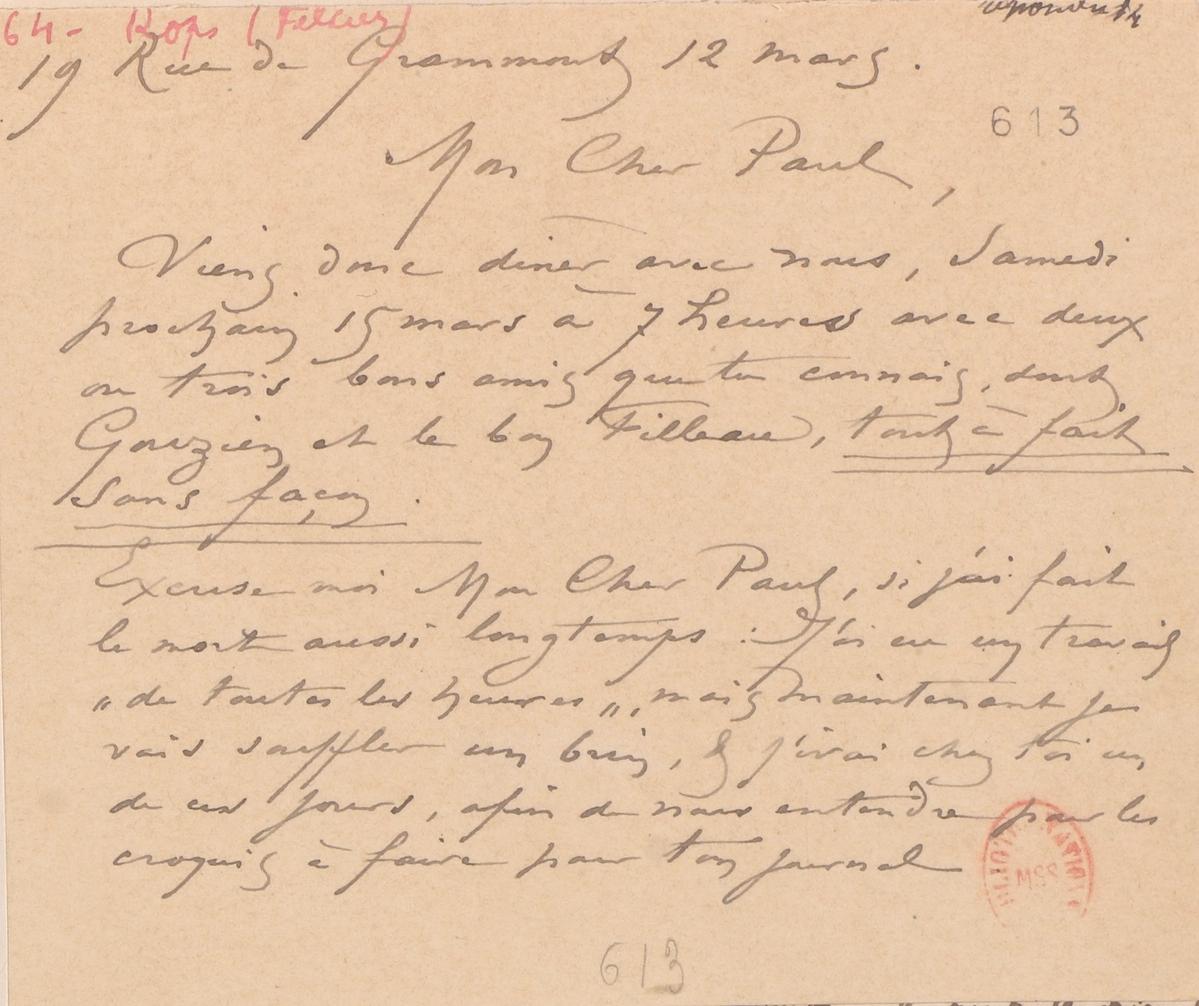 64- Rops (Félicien)
répondu 14
19 Rue de Grammont 12 mars.
613
Mon Cher Paul,
Viens donc diner avec nous, Samedi
prochain 15 mars à 7 heures avec deux
ou trois bons amis que tu connais, dont
Gouzien et le bon Filleau, tout à fait
sans façon.
Excuse moi Mon Cher Paul, si j'ai fait
le mort aussi longtemps : J'ai eu un travail
„de toutes les heures„, mais maintenant je
vais souffler un brin, & j'irai chez toi un
de ces jours, afin de nous entendre pour les
croquis à faire pour ton journal
MSS
613